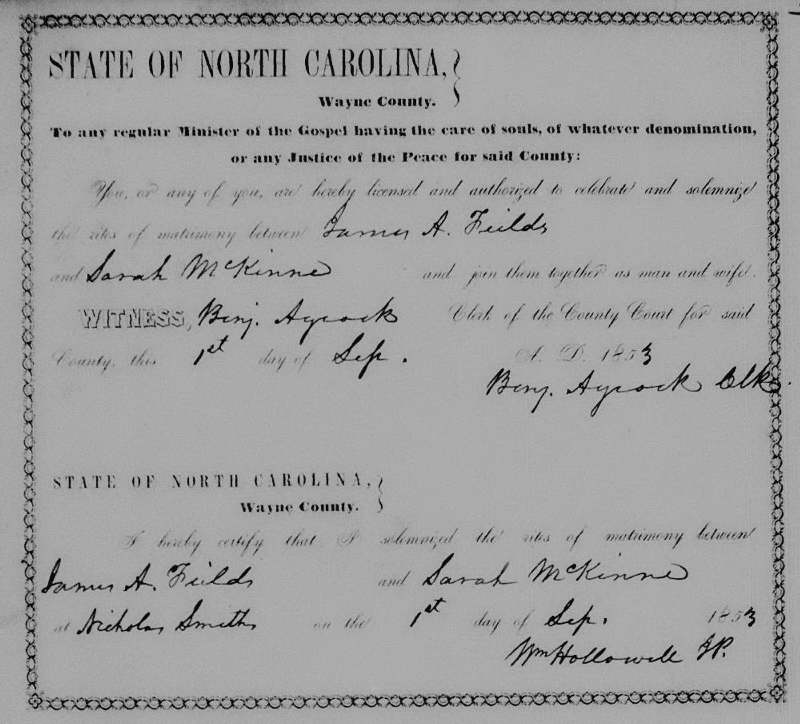 STATE OF NORTH CAROLINA,
Wayne County.
To any regular Minister of the Gospel having the care of souls, of whatever denomination,
or any Justice of the Peace for said County:
You, or any of you, are hereby licensed and authorized to celebrate and solemnize
the rites of matrimony between James A. Fields
and Sarah McKinne and join them together as man and wife.
WITNESS, Benj. Aycock Clerk of the County Court for said
County, this 1st day of Sep. A. D. 1853
Benj. Aycock Clk.
STATE OF NORTH CAROLINA,
Wayne County.
I hereby certify that I solemnized the rites of matrimony between
James A. Fields and Sarah McKinne
at Nicholas Smiths on the 1st day of Sep. 1853
Wm Hollowell JP.